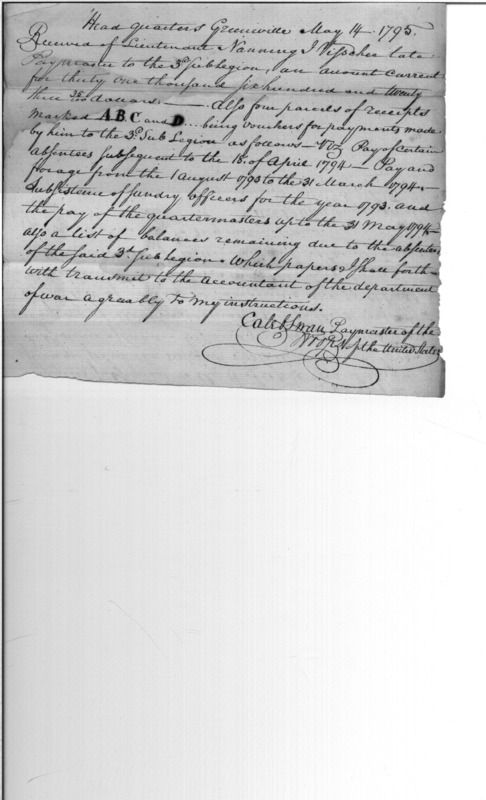 Head quarters Greenville May 14 1795.
Received of Lieutenant Nanning J Visscher late
Paymaster to the 3d. Sub Legion, an account current
for thirty one thousand six hundred and twenty
three /100 dollars. — Also four parcels of receipts
marked A B C and D... being vouchers for payments made
by him to the 3d. Sub Legion as follows — Viz Pay of certain
absentees subsequent to the 1st. of April 1794 — Pay and
forage from the 1 August 1793 to the 31 March 1794 —
Subsistence of sundry officers for the year 1793. and
the pay of the quartermasters up to the 31 May 1794 —
also a list of balances remaining due to the absentees
of the said 3d. Sub legion. Which papers I shall forth-
with transmit to the accountant of the department
of war agreably to my instructions.
Caleb Swan Paymaster of the
Troops of the United States